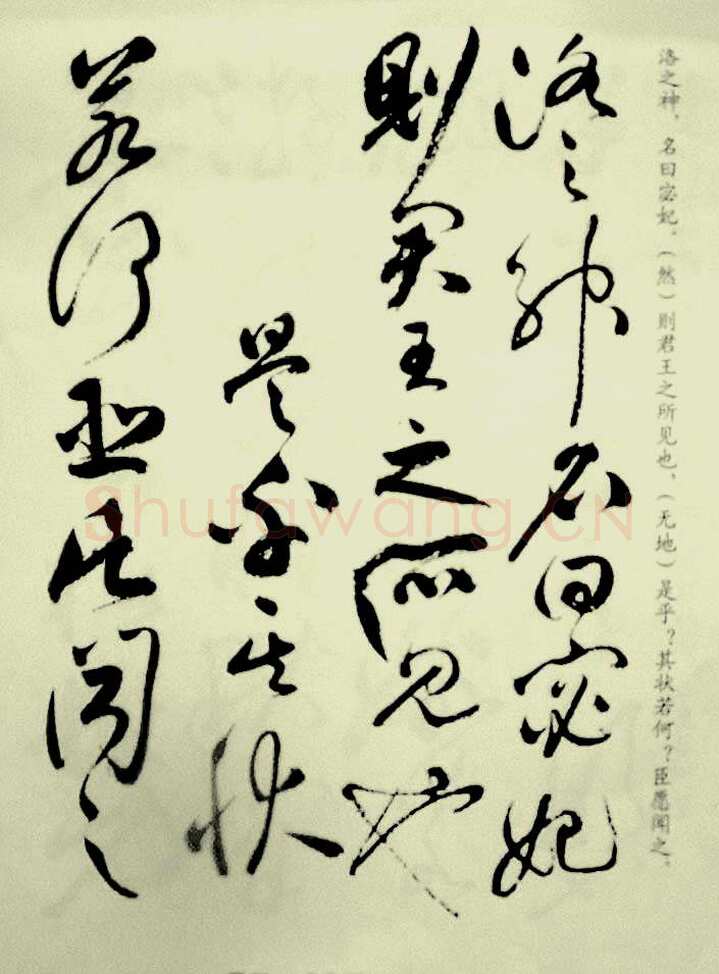 洛之神、名曰宓妃。（然）則君王之所见也、（无地）是乎？其状若何？臣愿闻之。
洛之神名曰宓妃
則君王之所見也
是乎其狀
若何臣聞之
Shufawang.CN